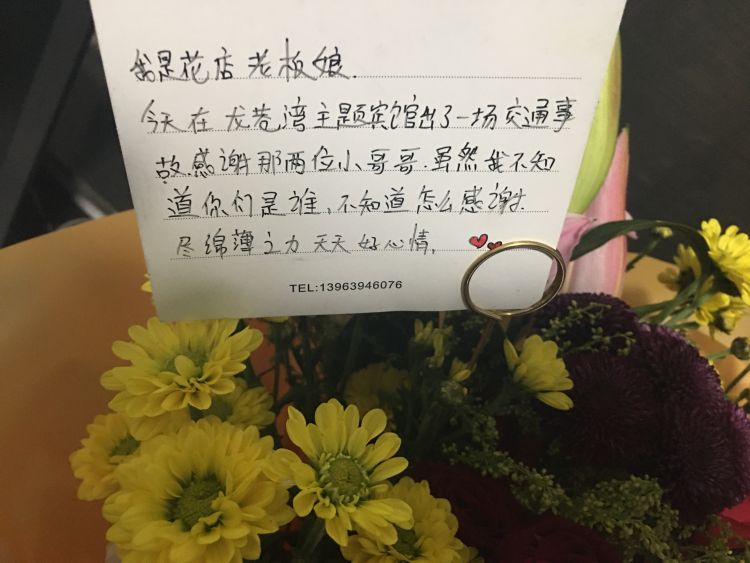 我是花店老板娘.
今天在龙苑湾主题宾馆出了一场交通事
故.感谢那两位小哥哥.虽然我不知
道你们是谁、不知道怎么感谢.
尽绵薄之力天天好心情.
TEL:13963946076